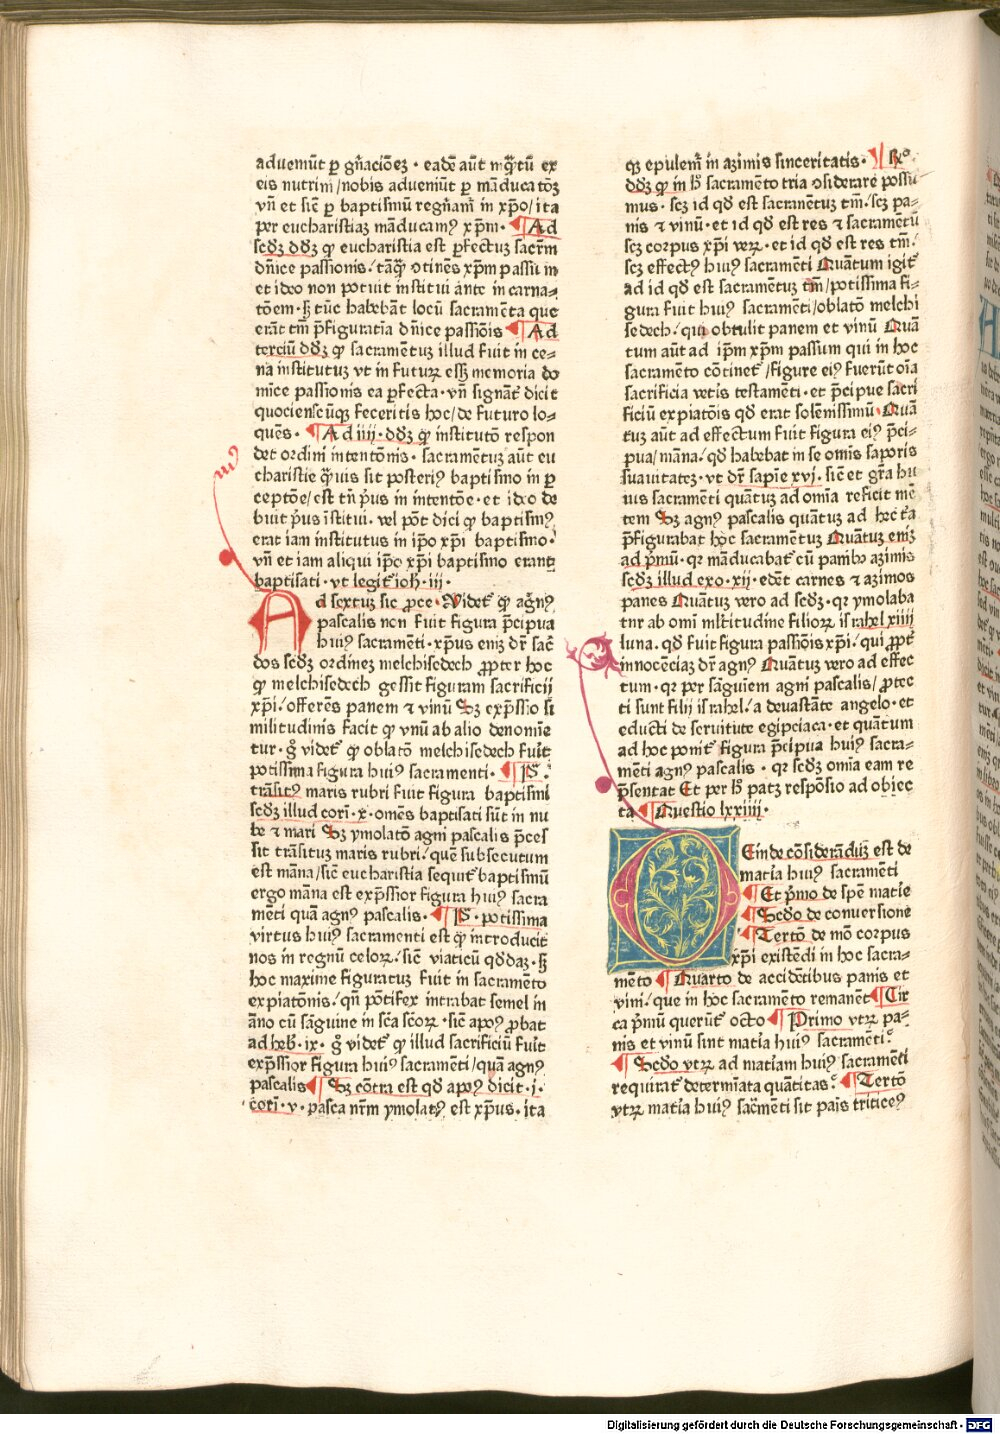 advemūt ꝑ gn̄acōeꝫ · eadē aūt nutͣtū ex
eis nutrim̄/nobis advemūt ꝑ māducatōꝫ
vn̄ et sic̄ ꝑ baptismū regn̄am̄ in xp̄o/ita
per eucharistiaꝫ māducamꝰ xp̄m · ¶ Ad
scdꝫ ddꝫ ꝙ eucharistia est ꝑfectuꝫ sacr̄m
dn̄ice passionis/tāqꝫ ↄtinēs xp̄m passū ·
et ideo non potuit institui ante incarna⸗
tōem · sꝫ tūc habebāt locū sacramēta que
erāt tm̄ p̄figuratīa dn̄ice passiōis ¶ Ad
terciū ddꝫ ꝙ sacramētuꝫ illud fuit in ce⸗
na institutuꝫ vt in futuꝝ essꝫ memoria do
mīce passiōnis ea ꝑfecta · vn̄ signāt̄ dicit
quociēscūqꝫ feceritis hoc/de futuro lo⸗
quēs · ¶ Ad iiij · ddꝫ ꝙ institutō respon
det ordini intentōnis · sacramētuꝫ aūt eu
charistie qͣuis sit posteriꝰ baptismo in ꝑ
ceptōe/est tn̄ p̄us in intentōe · et ideo de
buit p̄us īstitui · vel pōt dici ꝙ baptismꝰ
erat iam institutus in ip̄o xp̄i baptismo ·
vn̄ et iam aliqui ip̄o xp̄i baptismo erant
baptisati · vt legit̄ ioh̄ · iii ·
Ad sextuꝫ sic ꝓce · Videt̄ ꝙ agnꝰ
pascalis non fuit figura p̄cipua
huiꝰ sacramēti · xp̄us enīꝫ dr̄ sac̄
dos scdꝫ ordineꝫ melchisedech ꝓpter hoc
ꝙ melchisedech gessit figuram sacrificii
xp̄i/offerēs panem ⁊ vinū Sꝫ exp̄ssio si
militudinis facit ꝙ vnū ab alio denomīe
tur · g̊ videt̄ ꝙ oblatō melchisedech fuit̄
potissima figura huiꝰ sacramenti · ¶ P̄ ·
trāsitꝰ maris rubri fuit figura baptismi
scdꝫ illud cori · x · omēs baptisati sūt in nu
be ⁊ mari Sꝫ ymolatō agni pascalis p̄ces
sit trāsituꝫ maris rubri/quē subsecutum
est māna/sic̄ eucharistia sequit̄ baptismū
ergo māna est exp̄ssior figura huiꝰ sacra
mēti quā agnꝰ pascalis · ¶ P̄ · potissima
virtus huiꝰ sacramenti est ꝙ introducit
nos in regnū celoꝝ/sic̄ viaticū qd̄daꝫ · sꝫ
hoc maxime figuratuꝫ fuit in sacramēto
expiatōnis · qn̄ pōtifex intrabat semel in
āno cū sāguine in sc̄a sc̄oꝝ · sic̄ apoꝰ ꝓbat
ad heb̄ · ix · g̊ videt̄ ꝙ illud sacrificiū fuit
exp̄ssior figura huiꝰ sacramēti/quā agnꝰ
pascalis ¶ Sꝫ cōtra est qd̄ apoꝰ dicit · j ·
cori · v · pasca nr̄m ymolatꝰ est xp̄us · ita
qꝫ epulem̄ in azimis sinceritatis · ¶ Rͦ
ddꝫ ꝙ in hͦ sacramēto tria ↄsiderare possu
mus · scꝫ id qd̄ est sacramētuꝫ tm̄/scꝫ pa⸗
nis ⁊ vinū · et id qd̄ est res ⁊ sacramētū
scꝫ corpus xp̄i veꝝ · et id qd̄ est res tm̄/
scꝫ effectꝰ huiꝰ sacramēti Quātum igit̄
ad id qd̄ est sacramētuꝫ tm̄/potissima fi⸗
gura fuit huiꝰ sacramēti/oblatō melchi
sedech/qui obtulit panem et vinū Quā
tum aūt ad ip̄m xp̄m passum qui in hoc
sacramēto cōtinet̄/figure eiꝰ fuerūt oīa
sacrificia vetis testamēti · et p̄cipue sacri
ficiū expiatōis qd̄ erat solēnissimū · Quā
tuꝫ aūt ad effectum fuit figura eiꝰ p̄ci⸗
pua/māna/qd̄ habebat in se omīs saporis
suauitateꝫ · vt dr̄ sapīe xvj · sic̄ et gr̄a hu
ius sacramēti quātuꝫ ad omīa reficit mē
tem Sꝫ agnꝰ pascalis quātuꝫ ad hec t̄a
p̄figurabat hoc sacramētuꝫ Quātuꝫ enīꝫ
ad p̄mū · qꝛ māducabat̄ cū panibꝫ azimis
scdꝫ illud exo · xij · edēt carnes ⁊ azimos
panes Quātuꝫ vero ad scdꝫ · qꝛ ymolaba
tur ab omī ml̄titudine filioꝝ israhel xiiij
luna · qd̄ fuit figura passiōis xp̄i/qui ꝓpt̄
innocēciaꝫ dr̄ agnꝰ Quātuꝫ vero ad effec
tum · qꝛ per sāguiem agni pascalis/ꝓtec
ti sunt filij israhel/a deuastāte angelo · et
educti de seruitute egipciaca · et quātum
ad hoc ponit̄ figura p̄cipua huiꝰ sacra⸗
mēti agnꝰ pascalis · qꝛ scdꝫ omīa eam re
p̄sentat Et per hͦ patꝫ respōsio ad obiec
ta ¶ Questio lxxiiij ·
DEinde cōsideradūꝫ est de
matīa huiꝰ sacramēti
¶ Et p̄mo de spē matīe
¶ Scdo de conuersione
¶ Tertō de mō corpus
xp̄i existēdi in hoc sacra⸗
mēto ¶ Quarto de accidētibus panis et
vini/que in hoc sacramēto remanēt ¶ Cir
ca p̄mū querūt̄ octo ¶ Primo vtꝝ pa⸗
nis et vinū sint matīa huiꝰ sacramēti ·
¶ Scdo vtꝝ ad matīam huiꝰ sacramēti
requirat̄ determīata quātitas · ¶ Tertō
vtꝝ matīa huiꝰ sacr̄mēti sit panis triticeꝰ
Digitalisierung gefördert durch die Deutsche Forschungsgemeinschaft - DFG